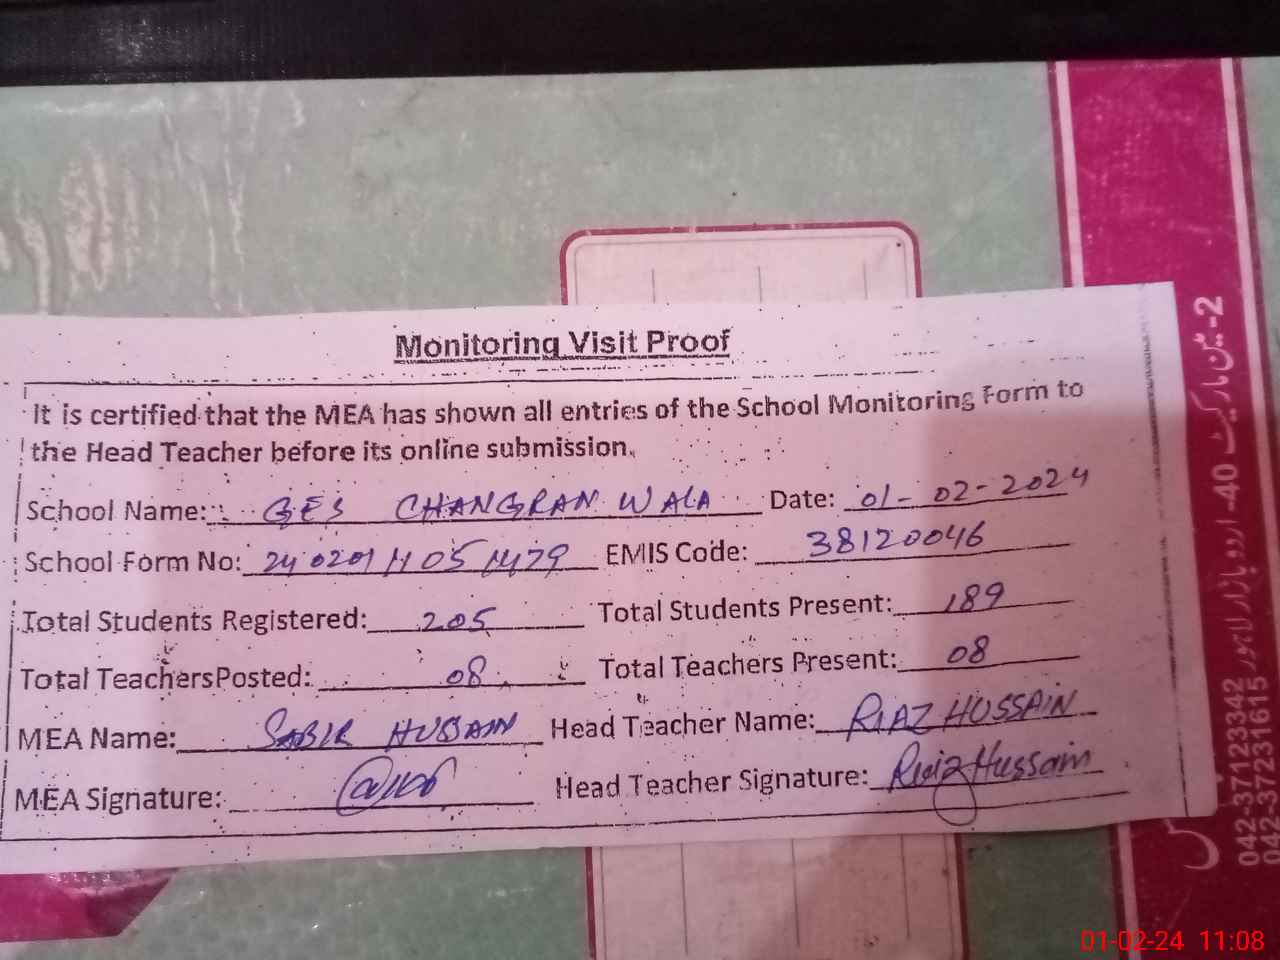 Monitoring Visit Proof
It is certified that the MEA has shown all entries of the School Monitoring Form to
the Head Teacher before its online submission.
School Name: GES CHANGRAN WALA Date: 01-02-2024
School Form No: EMIS Code: 38120046
Total Students Registered: 205 Total Students Present: 189
Total Teachers Posted: 08 Total Teachers Present: 08
MEA Name: SABIR HUSSAIN Head Teacher Name: RIAZ HUSSAIN
MEA Signature: Head Teacher Signature: Riaz Hussain
2-مین مارکیٹ 40-اردو بازار لاہور
042-37123342
042-37231615
01-02-24 11:08